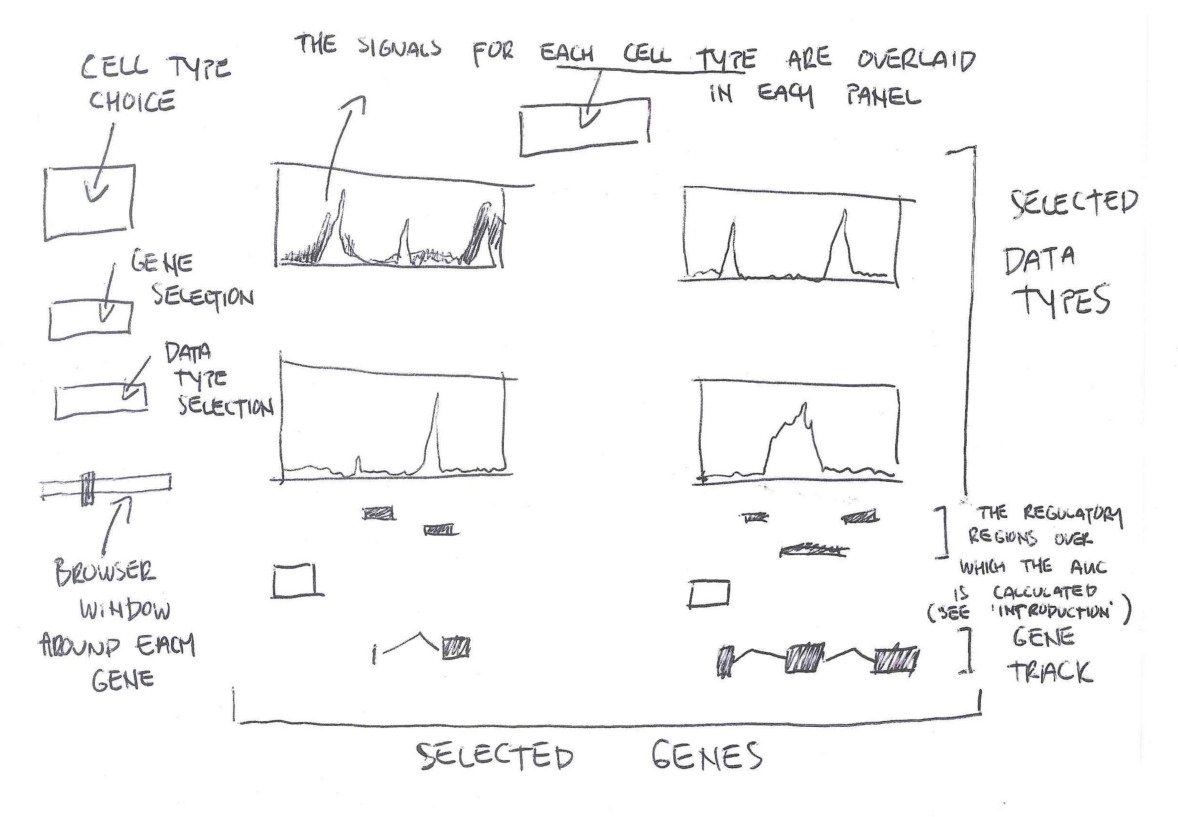 THE SIGNALS FOR EACH CELL TYPE ARE OVERLAID
IN EACH PANEL
CELL TYPE
CHOICE
GENE
SELECTION
DATA
TYPE
SELECTION
BROWSER
WINDOW
AROUND EACH
GENE
SELECTED
DATA
TYPES
THE REGULATORY
REGIONS OVER
WHICH THE AUC
IS CALCULATED
(SEE 'INTRODUCTION')
GENE
TRACK
SELECTED GENES